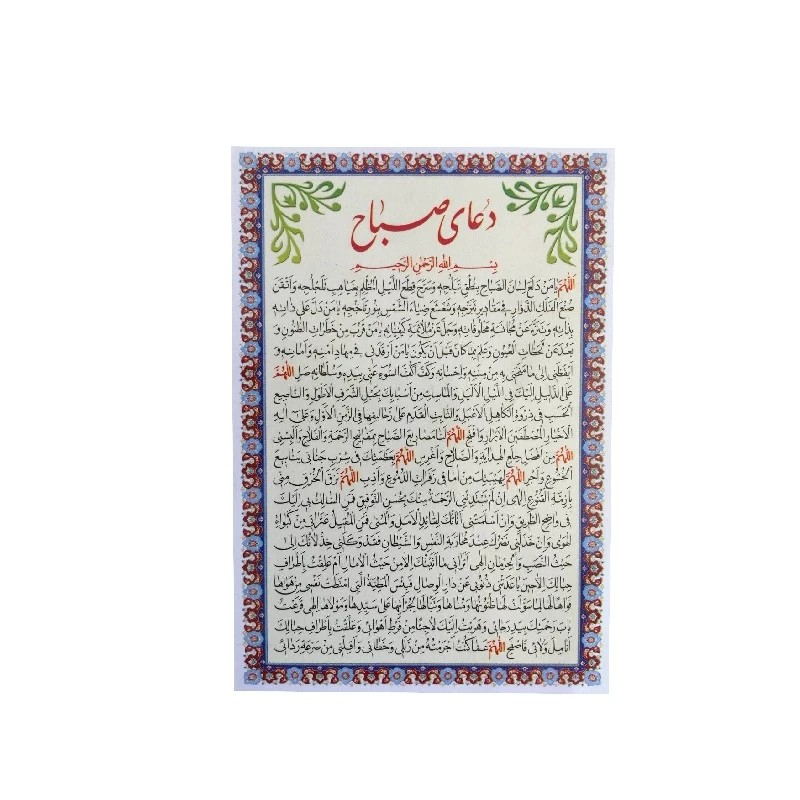 دعای صباح
بِسْمِ اللهِ الرَّحْمٰنِ الرَّحيمِ
اَللّهُمَّ يا مَنْ دَلَعَ لِسانَ الصَّباحِ بِنُطْقِ تَبَلُّجِهِ وَسَرَّحَ قِطَعَ اللَّيْلِ الْمُظْلِمِ بِغَياهِبِ تَلَجْلُجِهِ وَاَتْقَنَ
صُنْعَ الْفَلَكِ الدَّوّارِ فى مَقاديرِ تَبَرُّجِهِ وَشَعْشَعَ ضِياءَ الشَّمْسِ بِنُورِ تَاَجُّجِهِ يا مَنْ دَلَّ عَلى ذاتِهِ
بِذاتِهِ وَتَنَزَّهَ عَنْ مُجانَسَةِ مَخْلُوقاتِهِ وَجَلَّ عَنْ مُلائَمَةِ كَيْفِيّاتِهِ يا مَنْ قَرُبَ مِنْ خَطَراتِ الظُّنُونِ وَ
بَعُدَ عَنْ لَحَظاتِ الْعُيُونِ وَعَلِمَ بِما كانَ قَبْلَ اَنْ يَكُونَ يا مَنْ اَرْقَدَنى فى مِهادِ اَمْنِهِ وَاَمانِهِ وَ
اَيْقَظَنى اِلى ما مَنَحَنى بِهِ مِنْ مِنَنِهِ وَاِحْسانِهِ وَكَفَّ اَكُفَّ السُّوءِ عَنّى بِيَدِهِ وَسُلْطانِهِ صَلِّ اللّهُمَّ
عَلَى الدَّليلِ اِلَيْكَ فِى اللَّيْلِ الْاَلْيَلِ وَالْماسِكِ مِنْ اَسْبابِكَ بِحَبْلِ الشَّرَفِ الْاَطْوَلِ وَالنّاصِعِ
الْحَسَبِ فى ذِرْوَةِ الْكاهِلِ الْاَعْبَلِ وَالثّابِتِ الْقَدَمِ عَلى زَحاليفِها فِى الزَّمَنِ الْاَوَّلِ وَعَلى الِهِ
الْاَخْيارِ الْمُصْطَفَيْنَ الْاَبْرارِ وَافْتَحِ اللّهُمَّ لَنا مَصاريعَ الصَّباحِ بِمَفاتيحِ الرَّحْمَةِ وَالْفَلاحِ وَاَلْبِسْنى
اللّهُمَّ مِنْ اَفْضَلِ خِلَعِ الْهِدايَةِ وَالصَّلاحِ وَاَغْرِسِ اللّهُمَّ بِعَظَمَتِكَ فى شِرْبِ جَنانى يَنابيعَ
الْخُشُوعِ وَاَجْرِ اللّهُمَّ لِهَيْبَتِكَ مِنْ اماقى زَفَراتِ الدُّمُوعِ وَاَدِّبِ اللّهُمَّ نَزَقَ الْخُرْقِ مِنّى
بِاَزِمَّةِ الْقُنُوعِ اِلهى اِنْ لَمْ تَبْتَدِئْنِى الرَّحْمَةُ مِنْكَ بِحُسْنِ التَّوْفيقِ فَمَنِ السّالِكُ بى اِلَيْكَ
فى واضِحِ الطَّريقِ وَاِنْ اَسْلَمَتْنى اَناتُكَ لِقائِدِ الْاَمَلِ وَالْمُنى فَمَنِ الْمُقيلُ عَثَراتى مِنْ كَبَواتِ
الْهَوى وَاِنْ خَذَلَنى نَصْرُكَ عِنْدَ مُحارَبَةِ النَّفْسِ وَالشَّيْطانِ فَقَدْ وَكَلَنى خِذْلانُكَ اِلى
حَيْثُ النَّصَبِ وَالْحِرْمانِ اِلهى اَتَرانى ما اَتَيْتُكَ اِلّا مِنْ حَيْثُ الْامالِ اَمْ عَلِقْتُ بِاَطْرافِ
حِبالِكَ اِلّا حينَ باعَدَتْنى ذُنُوبى عَنْ دارِ الْوِصالِ فَبِئْسَ الْمَطِيَّةُ الَّتى امْتَطَتْ نَفْسى مِنْ هَواها
فَواهاً لَها لِما سَوَّلَتْ لَها ظُنُونُها وَمُناها وَتَبّاً لَها لِجُرْاَتِها عَلى سَيِّدِها وَمَوْلاها اِلهى قَرَعْتُ
بابَ رَحْمَتِكَ بِيَدِ رَجائى وَهَرَبْتُ اِلَيْكَ لاجِئاً مِنْ فَرْطِ اَهْوائى وَعَلَّقْتُ بِاَطْرافِ حِبالِكَ
اَنامِلَ وَلائى فَاصْفَحِ اللّهُمَّ عَمّا كُنْتُ اَجْرَمْتُهُ مِنْ زَلَلى وَخَطائى وَاَقِلْنى مِنْ صَرْعَةِ رِدائى